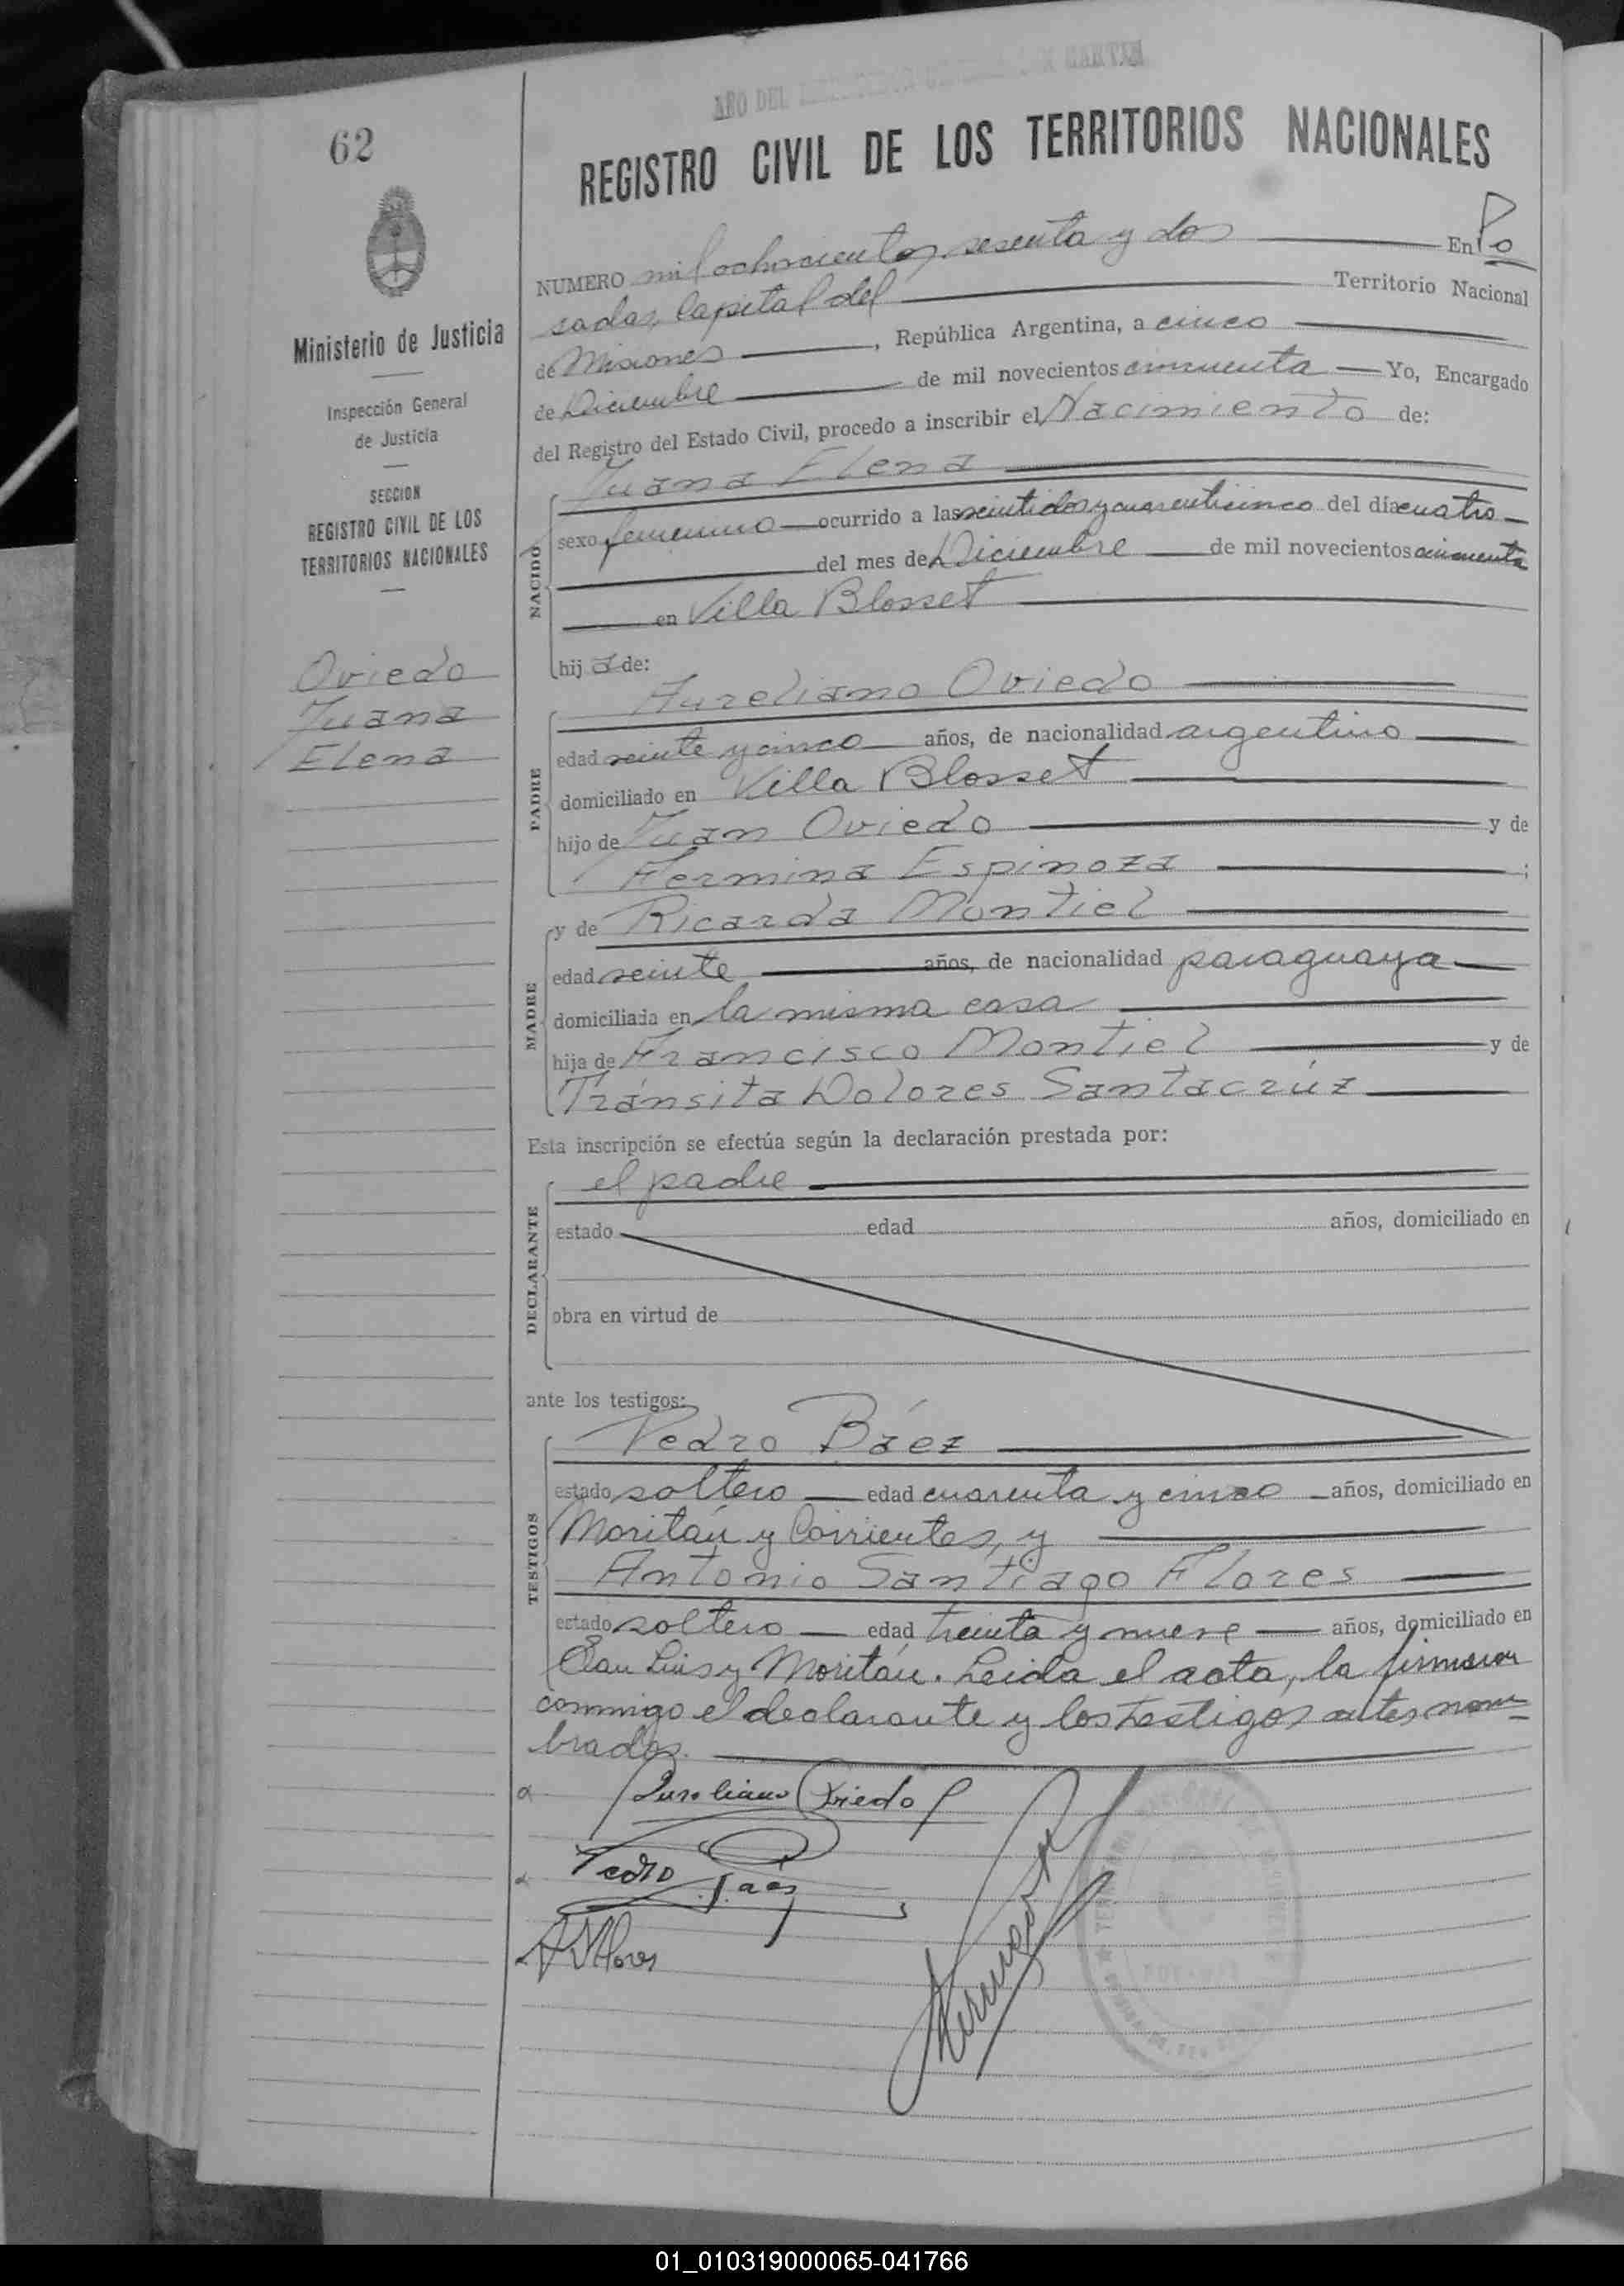 AÑO DEL
62
REGISTRO CIVIL DE LOS TERRITORIOS NACIONALES
Ministerio de Justicia
Inspección General
de Justicia
SECCION
REGISTRO CIVIL DE LOS
TERRITORIOS NACIONALES
Oviedo
Juana
Elena
NUMERO mil ochocientos sesenta y dos En Po
sadas, Capital del Territorio Nacional
de Misiones, República Argentina, a cinco
de Diciembre de mil novecientos cincuenta Yo, Encargado
del Registro del Estado Civil, procedo a inscribir el Nacimiento de:
Juana Elena
NACIDO
sexo femenino ocurrido a las veintidos y cuarenticinco del día cuatro
del mes de Diciembre de mil novecientos cincuenta
en Villa Blosset
hij a de:
Aureliano Oviedo
PADRE
edad veinte y cinco años, de nacionalidad argentino
domiciliado en Villa Blosset
hijo de Juan Oviedo y de
Fermina Espinoza;
y de Ricarda Montiel
MADRE
edad veinte años, de nacionalidad paraguaya
domiciliada en la misma casa
hija de Francisco Montiel y de
Tránsita Dolores Santacrúz
Esta inscripción se efectúa según la declaración prestada por:
el padre
DECLARANTE
estado edad años, domiciliado en
obra en virtud de
ante los testigos:
Pedro Báez
TESTIGOS
estado soltero edad cuarenta y cinco años, domiciliado en
Moritán y Corrientes, y
Antonio Santiago Flores
estado soltero edad treinta y nueve años, domiciliado en
San Luis y Moritán. Leida el acta, la firmaron
conmigo el declarante y los testigos antes nom=
brados.
Aureliano Oviedo
Pedro Báez
A S Flores
01_010319000065-041766